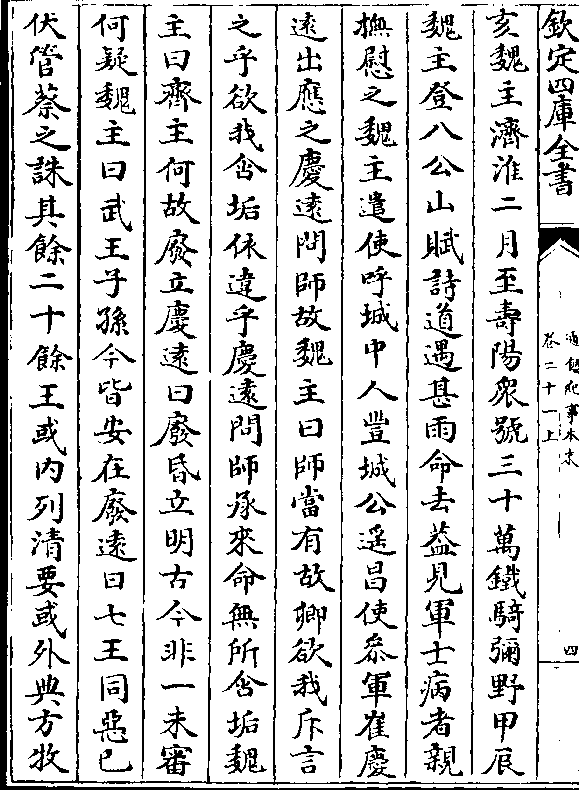 欽定四庫全書
通鑑紀事本末
卷二十一上
四
亥魏主濟淮二月至壽陽衆號三十萬鐵騎彌野甲辰
魏主登八公山賦詩道遇甚雨命去蓋見軍士病者親
撫慰之魏主遣使呼城中人豐城公遥昌使叅軍崔慶
逺出應之慶逺問師故魏主曰師當有故卿欲我斥言
之乎欲我含垢依違乎慶逺問師承來命無所含垢魏
主曰齊主何故廢立慶逺曰廢昏立明古今非一未審
何疑魏主曰武王子孫今皆安在廢逺曰七王同惡已
伏管蔡之誅其餘二十餘王或内列清要或外典方牧